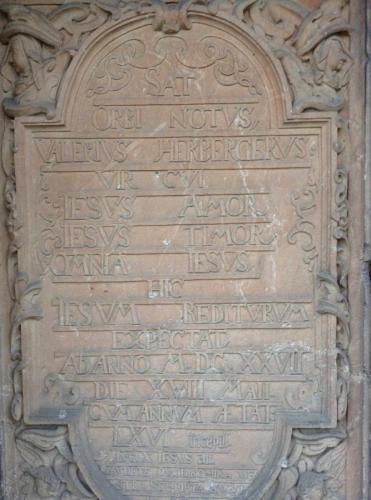 SAT
ORBI NOTVS
VALERIVS HERBERGERVS
VIR CVI
IESVS AMOR
IESVS TIMOR
OMNIA IESVS
HIC
IESVM REDITVRVM
EXPECTAT
AB ANNO M.DC.XXVII
DIE XVIII MAII
CVM ANNVM ÆTAT
LXVI